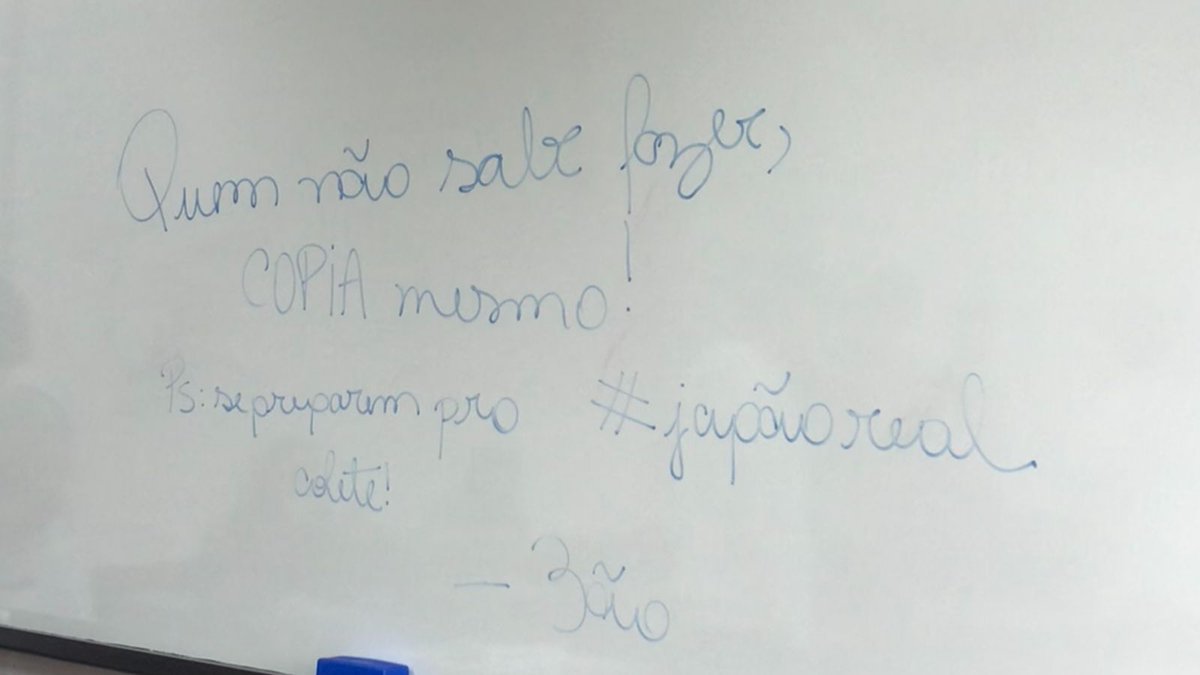 Quem não sabe fazer,
COPIA mesmo!
Ps: se preparem pro
colete!
#japãoreal
- 3ão